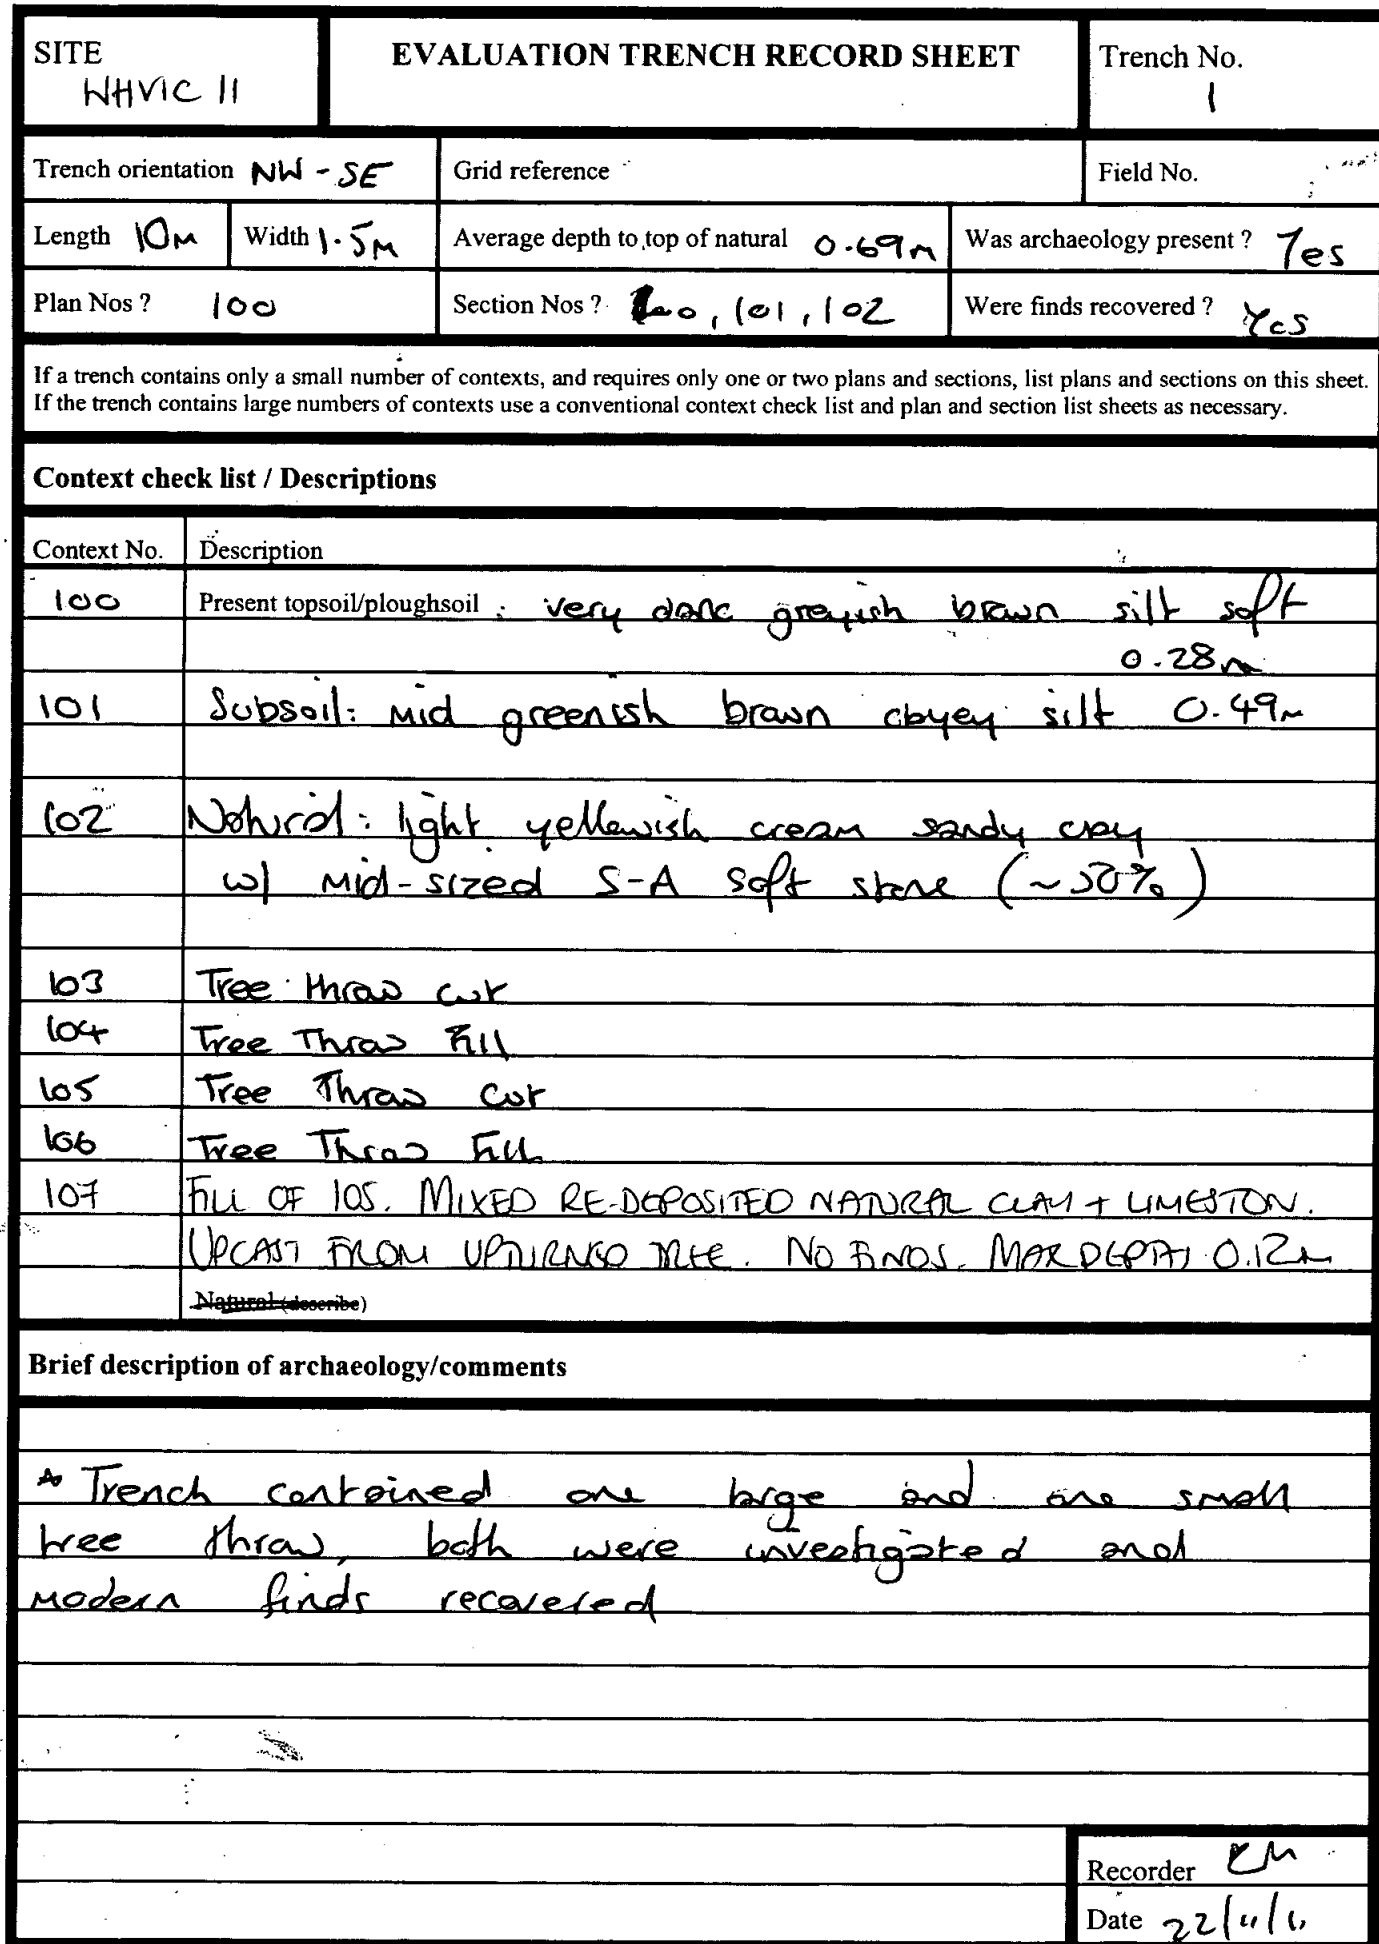 SITE
WHVIC 11
EVALUATION TRENCH RECORD SHEET
Trench No.
1
Trench orientation NW - SE
Grid reference
Field No.
Length 10m
Width 1.5m
Average depth to top of natural 0.69m
Was archaeology present ? Yes
Plan Nos ? 100
Section Nos ? 100, 101, 102
Were finds recovered ? Yes
If a trench contains only a small number of contexts, and requires only one or two plans and sections, list plans and sections on this sheet.
If the trench contains large numbers of contexts use a conventional context check list and plan and section list sheets as necessary.
Context check list / Descriptions
Context No. Description
100 Present topsoil/ploughsoil : very dark greyish brown silt soft
0.28m
101 Subsoil: mid greenish brown clayey silt 0.49m
102 Natural: light yellowish cream sandy clay
w/ mid-sized S-A soft stone
103 Tree throw cut
104 Tree Throw Fill
105 Tree Throw cut
106 Tree Throw Fill
107 FILL OF 105. MIXED RE-DEPOSITED NATURAL CLAY + LIMESTON.
UPCAST FROM UPTURNED TREE. NO FINDS. MAX DEPTH 0.12m
Natural (describe)
Brief description of archaeology/comments
* Trench contained one large and one small
tree throw, both were investigated and
modern finds recovered
Recorder
Date 22/11/11